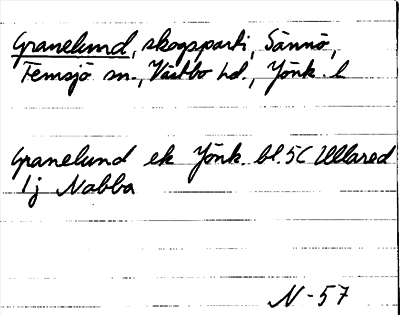 Granelund, skogsparti, Sännö,
Femsjö sn., Västbo hd., Jönk. l
Granelund ek Jönk. bl. 5C Ullared
1j Nabba
N-57